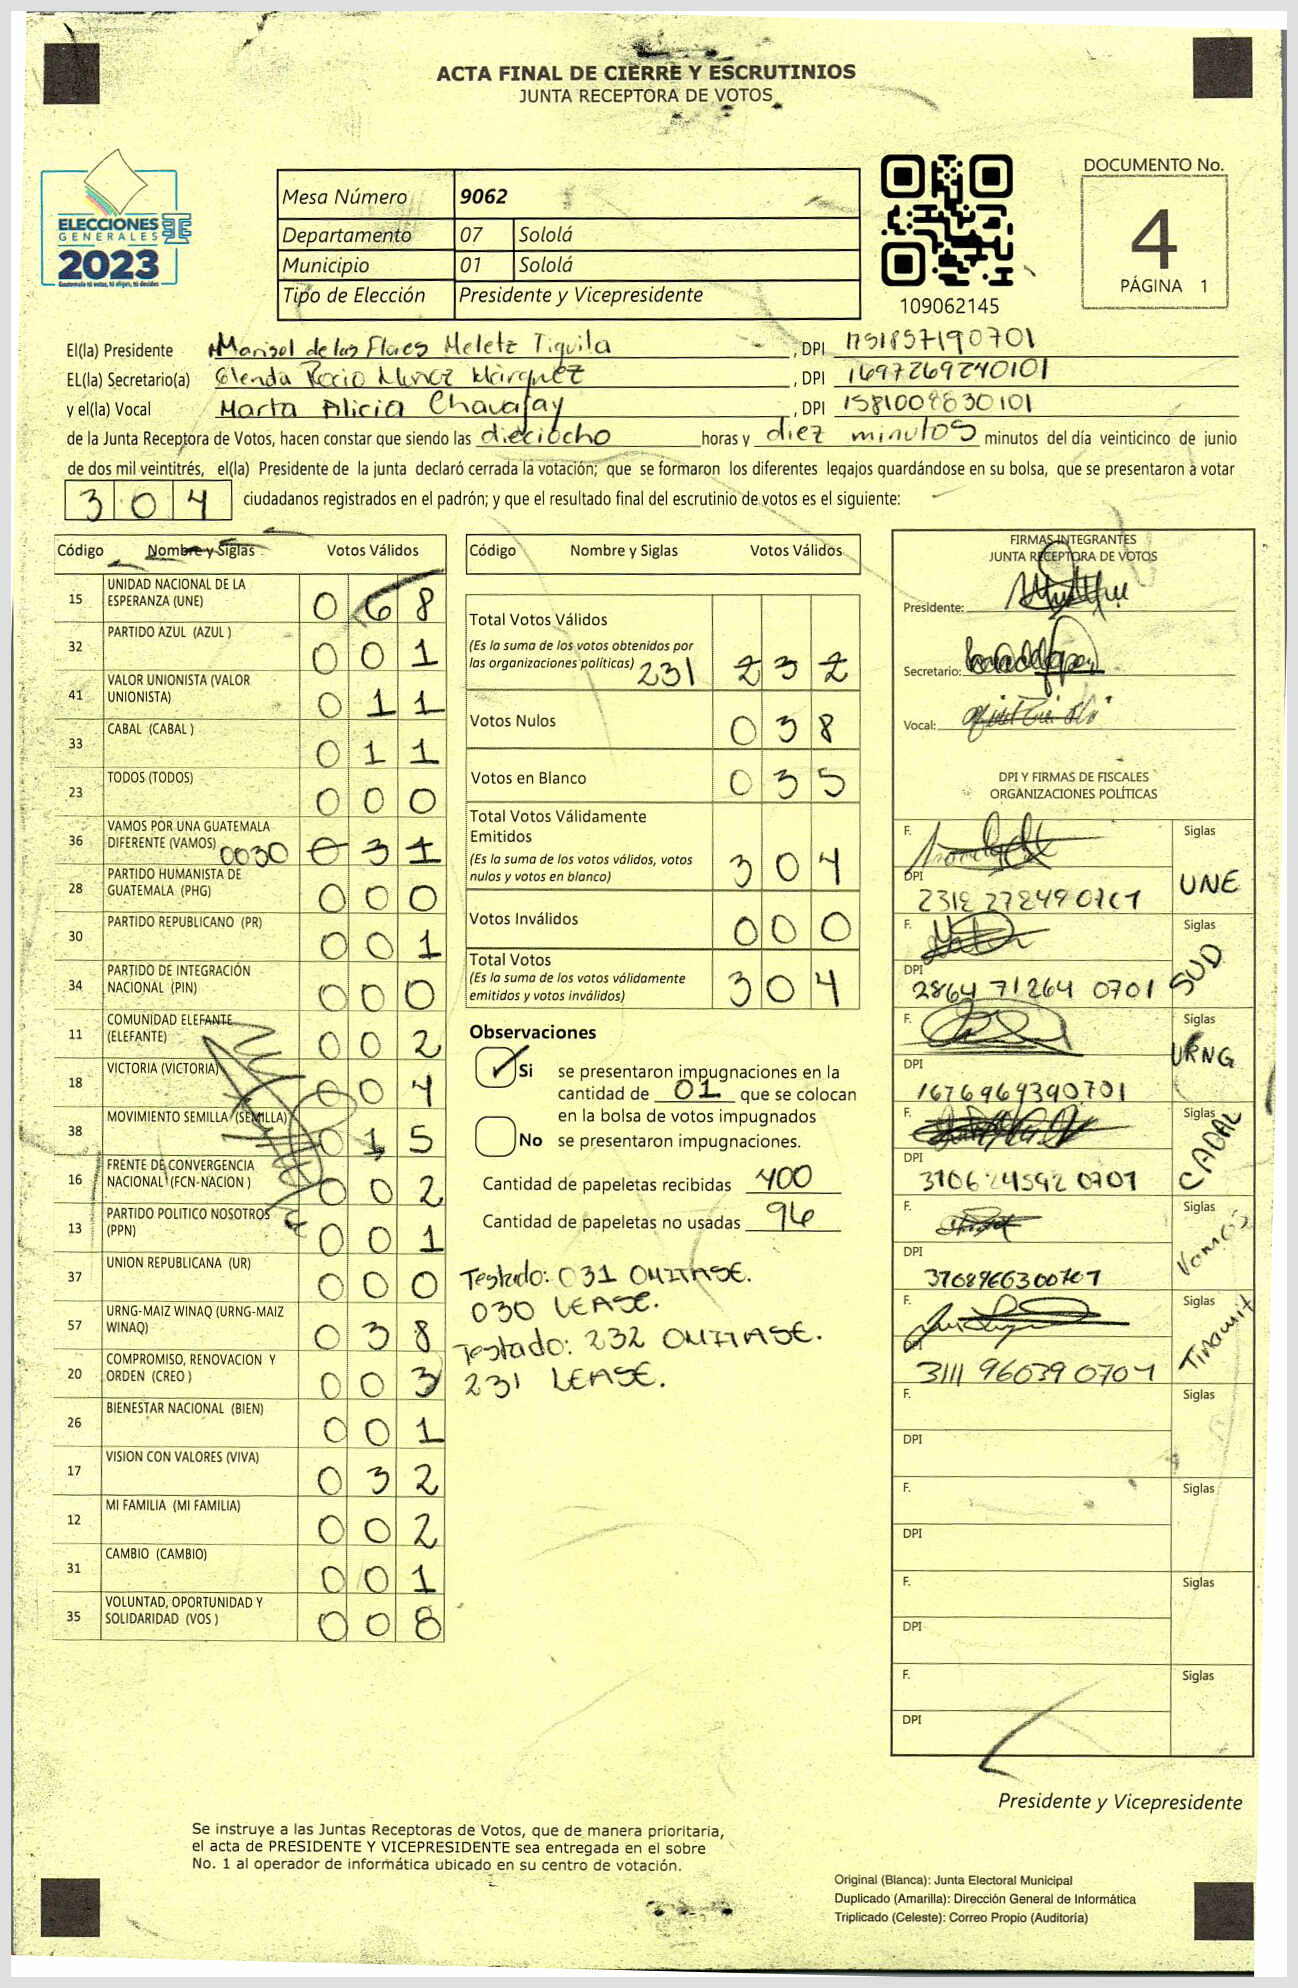 ACTA FINAL DE CIERRE Y ESCRUTINIOS
JUNTA RECEPTORA DE VOTOS
ELECCIONES
GENERALES
2023
Guatemala tú votas, tú eliges, tú decides
Mesa Número 9062
Departamento 07 Sololá
Municipio 01 Sololá
Tipo de Elección Presidente y Vicepresidente
109062145
DOCUMENTO No.
4
PÁGINA 1
El(la) Presidente Marisol de las Flores Meletz Tiquila, DPI 1731857190701
EL(la) Secretario(a) Glenda Rocio Munoz Márquez, DPI 1697269240101
y el(la) Vocal Marta Alicia Chavajay, DPI 1581008630101
de la Junta Receptora de Votos, hacen constar que siendo las dieciocho horas y diez minutos minutos del día veinticinco de junio
de dos mil veintitrés, el(la) Presidente de la junta declaró cerrada la votación; que se formaron los diferentes legajos guardándose en su bolsa, que se presentaron a votar
304 ciudadanos registrados en el padrón; y que el resultado final del escrutinio de votos es el siguiente:
Código Nombre y Siglas Votos Válidos
15 UNIDAD NACIONAL DE LA ESPERANZA (UNE) 068
32 PARTIDO AZUL (AZUL ) 001
41 VALOR UNIONISTA (VALOR UNIONISTA) 011
33 CABAL (CABAL ) 011
23 TODOS (TODOS) 000
36 VAMOS POR UNA GUATEMALA DIFERENTE (VAMOS) 0030 031
28 PARTIDO HUMANISTA DE GUATEMALA (PHG) 000
30 PARTIDO REPUBLICANO (PR) 001
34 PARTIDO DE INTEGRACIÓN NACIONAL (PIN) 000
11 COMUNIDAD ELEFANTE (ELEFANTE) 002
18 VICTORIA (VICTORIA) 004
38 MOVIMIENTO SEMILLA (SEMILLA) 015
16 FRENTE DE CONVERGENCIA NACIONAL (FCN-NACION ) 002
13 PARTIDO POLITICO NOSOTROS (PPN) 001
37 UNION REPUBLICANA (UR) 000
57 URNG-MAIZ WINAQ (URNG-MAIZ WINAQ) 038
20 COMPROMISO, RENOVACION Y ORDEN (CREO ) 003
26 BIENESTAR NACIONAL (BIEN) 001
17 VISION CON VALORES (VIVA) 032
12 MI FAMILIA (MI FAMILIA) 002
31 CAMBIO (CAMBIO) 001
35 VOLUNTAD, OPORTUNIDAD Y SOLIDARIDAD (VOS ) 008
Código Nombre y Siglas Votos Válidos
Total Votos Válidos
(Es la suma de los votos obtenidos por
las organizaciones políticas) 231 232
Votos Nulos 038
Votos en Blanco 035
Total Votos Válidamente
Emitidos
(Es la suma de los votos válidos, votos
nulos y votos en blanco) 304
Votos Inválidos 000
Total Votos
(Es la suma de los votos válidamente
emitidos y votos inválidos) 304
Observaciones
Si se presentaron impugnaciones en la
cantidad de 01 que se colocan
en la bolsa de votos impugnados
No se presentaron impugnaciones.
Cantidad de papeletas recibidas 400
Cantidad de papeletas no usadas 96
Testado: 031 OMITASE.
030 LEASE.
Testado: 232 OMITASE.
231 LEASE.
FIRMAS INTEGRANTES
JUNTA RECEPTORA DE VOTOS
Presidente:
Secretario:
Vocal:
DPI Y FIRMAS DE FISCALES
ORGANIZACIONES POLÍTICAS
F. Siglas
DPI 2312 27249 0701 UNE
F. Siglas
DPI 2864 71264 0701 SUD
F. Siglas
DPI 1676969390701 URNG
F. Siglas
DPI 3106245920701 CABAL
F. Siglas
DPI 3708966300701 Vamos
F. Siglas
DPI 3111 96039 0701 Tinamit
F. Siglas
DPI
F. Siglas
DPI
F. Siglas
DPI
F. Siglas
DPI
Presidente y Vicepresidente
Se instruye a las Juntas Receptoras de Votos, que de manera prioritaria,
el acta de PRESIDENTE Y VICEPRESIDENTE sea entregada en el sobre
No. 1 al operador de informática ubicado en su centro de votación.
Original (Blanca): Junta Electoral Municipal
Duplicado (Amarilla): Dirección General de Informática
Triplicado (Celeste): Correo Propio (Auditoría)